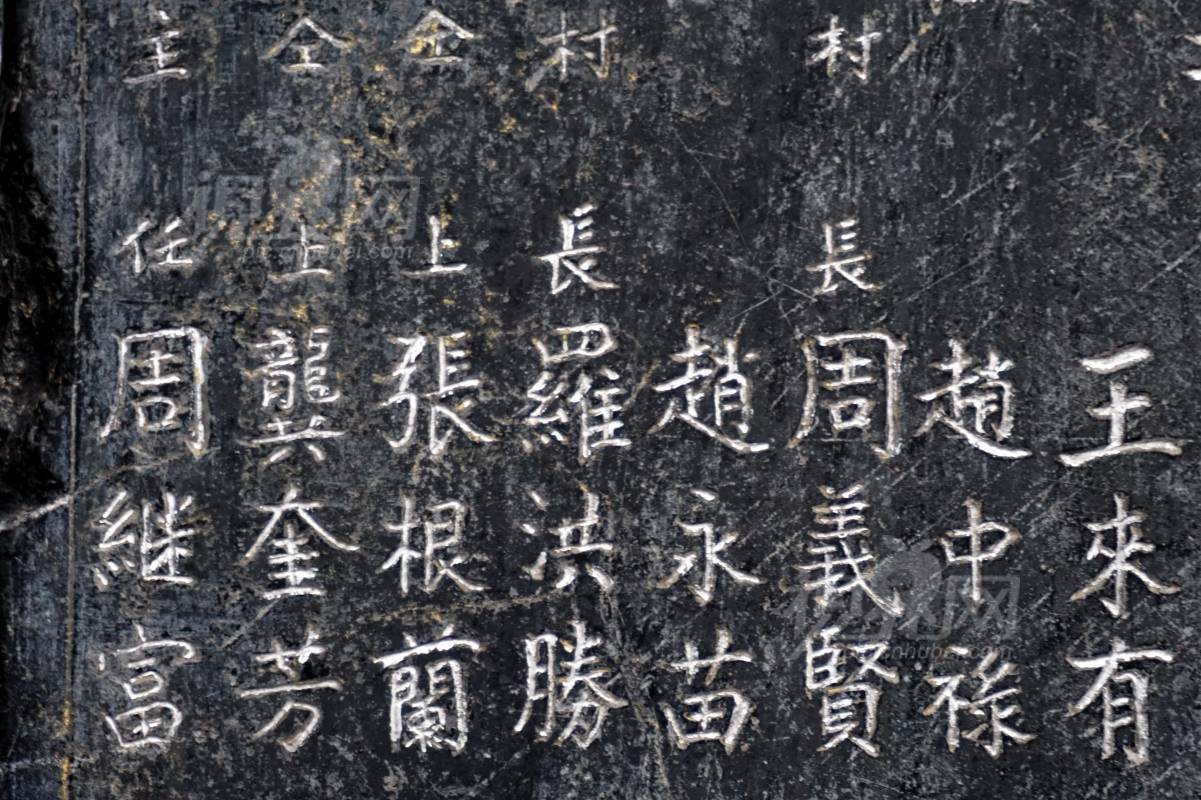 王來有
趙中禄
村長周義賢
趙永苗
村長羅洪勝
仝上張根蘭
仝上龔奎芳
主任周継富